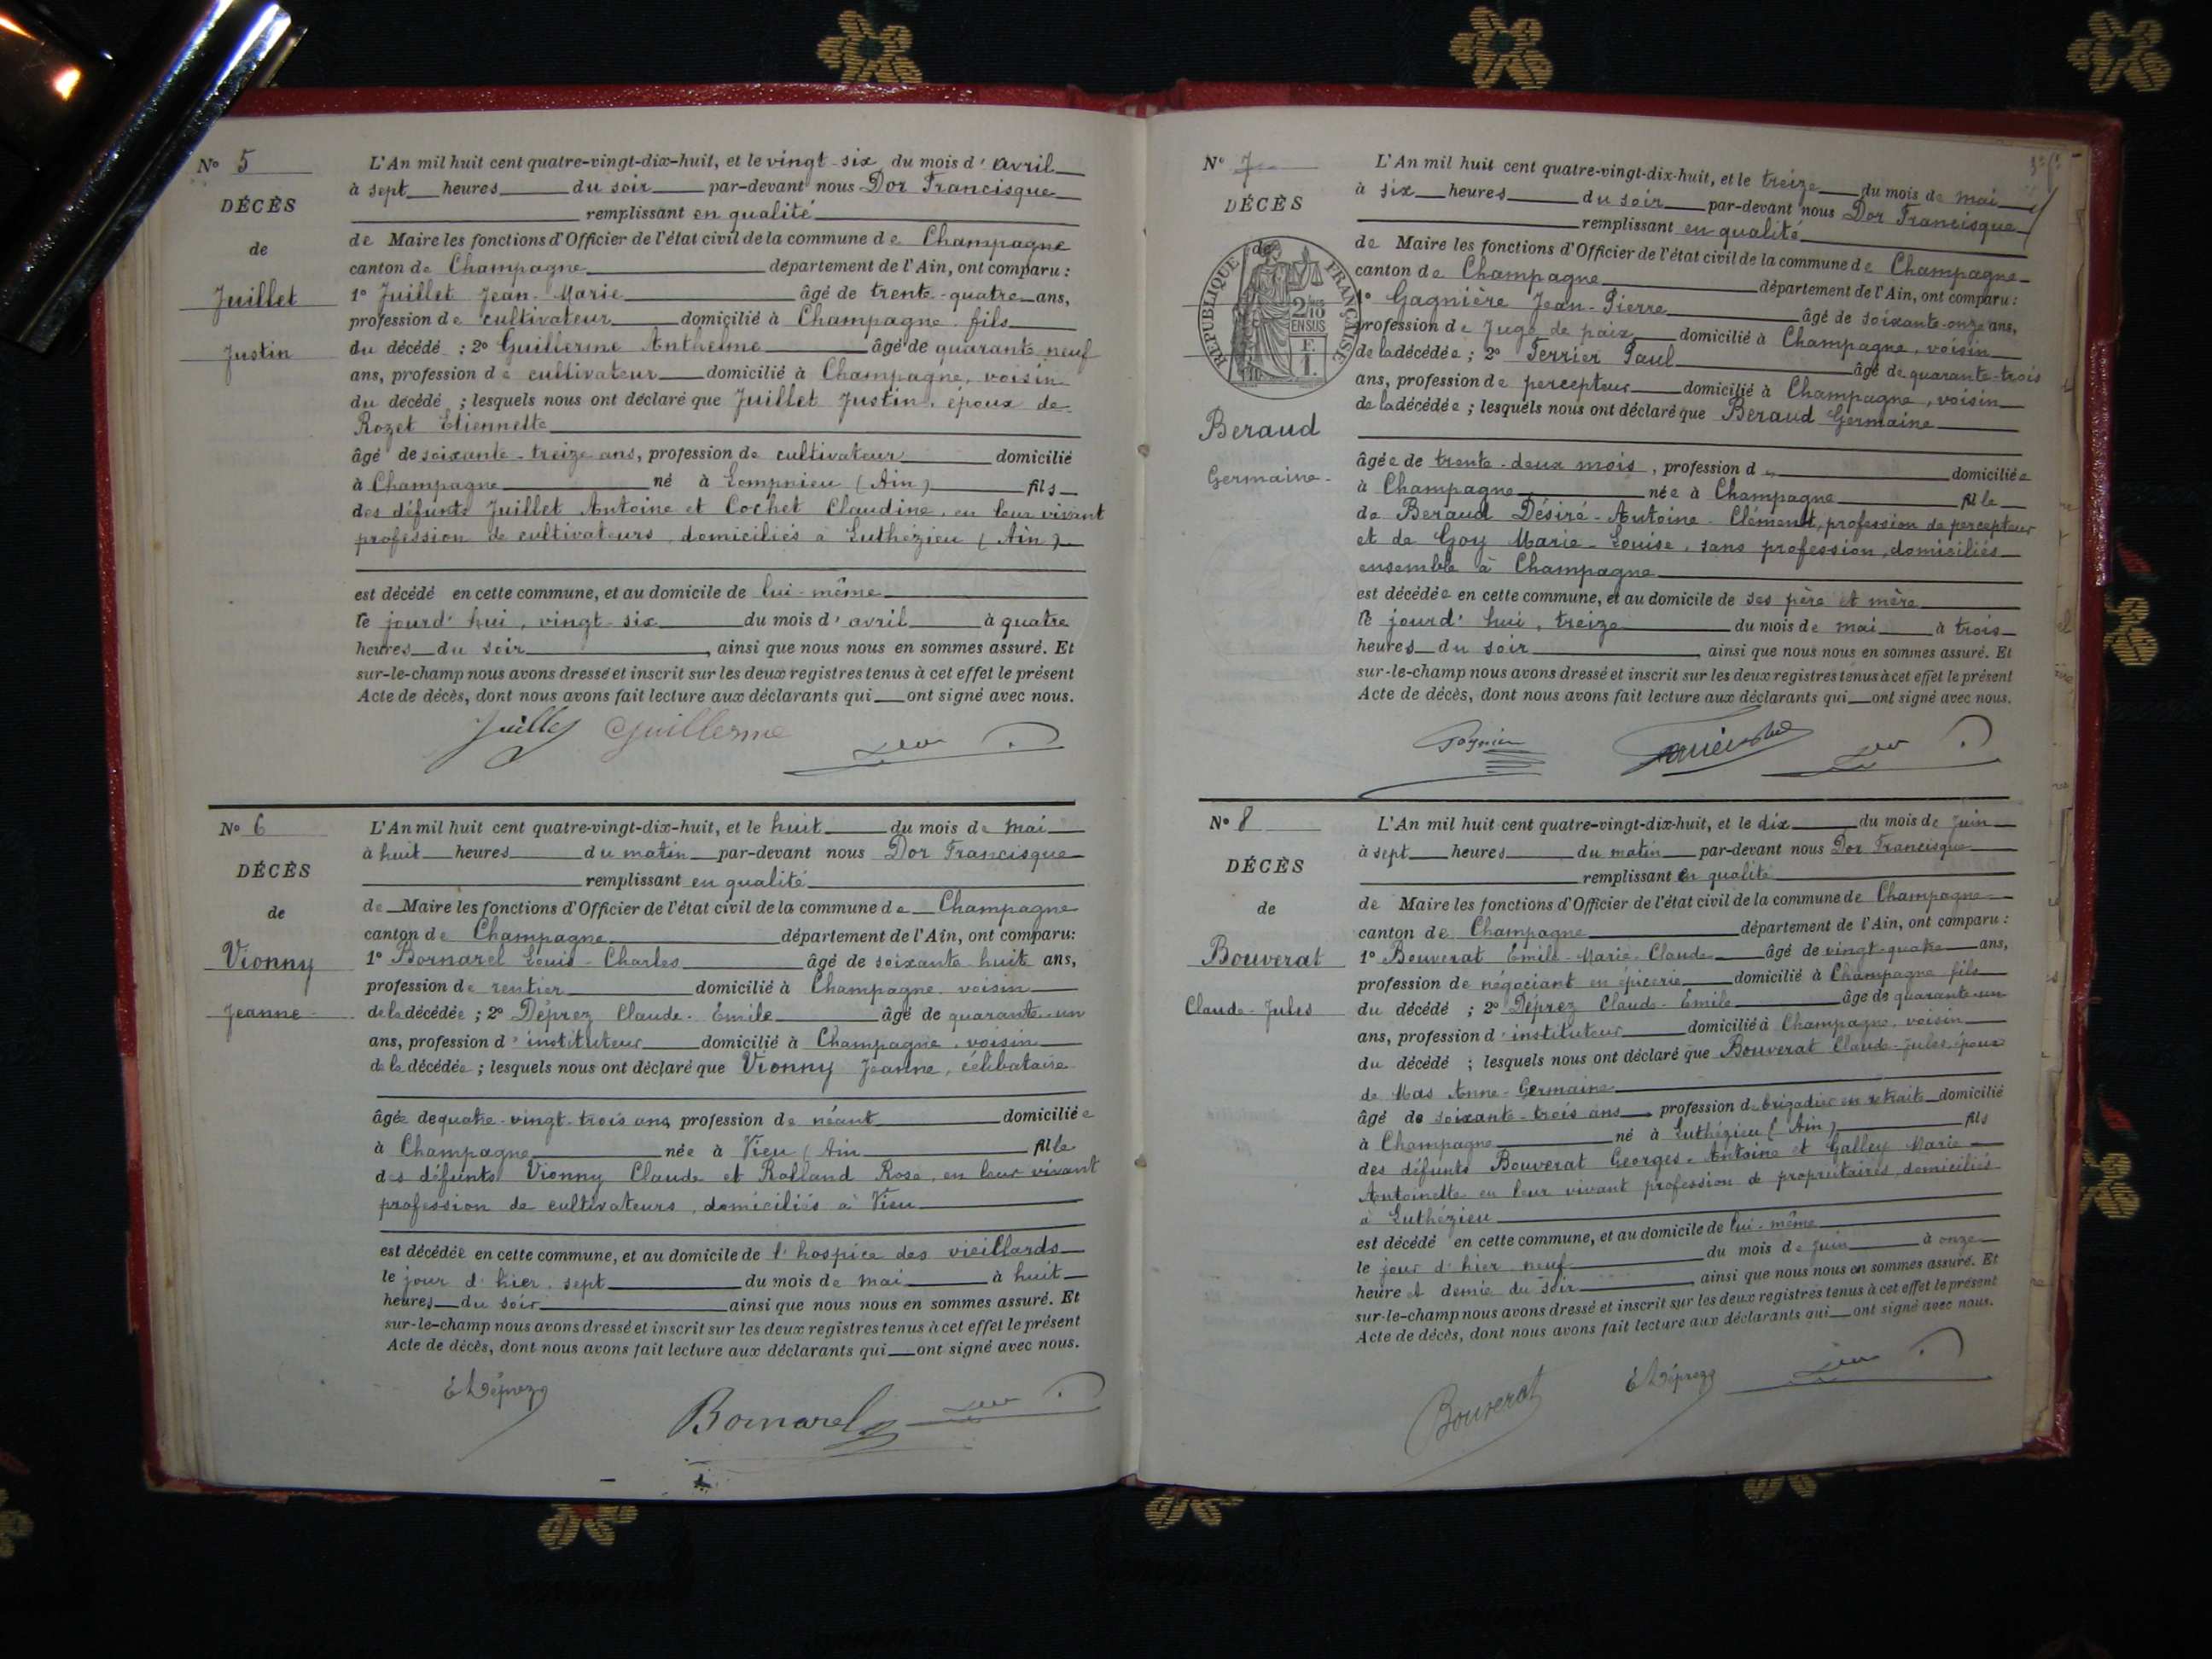 N° 5
DÉCÈS
de
Juillet
Justin
L'An mil huit cent quatre-vingt-dix-huit, et le vingt-six du mois d'avril
à sept heures du soir par-devant nous Dor Francisque
remplissant en qualité
de Maire les fonctions d'Officier de l'état civil de la commune de Champagne
canton de Champagne département de l'Ain, ont comparu :
1° Juillet Jean-Marie âgé de trente-quatre ans,
profession de cultivateur domicilié à Champagne, fils
du décédé ; 2° Guillerme Anthelme âgé de quarante neuf
ans, profession de cultivateur domicilié à Champagne, voisin
du décédé ; lesquels nous ont déclaré que Juillet Justin, époux de
Rozet Etiennette
âgé de soixante-treize ans, profession de cultivateur domicilié
à Champagne né à Lompnieu (Ain) fils
des défunts Juillet Antoine et Cochet Claudine, en leur vivant
profession de cultivateurs, domiciliés à Luthézieu (Ain)
est décédé en cette commune, et au domicile de lui-même
le jourd'hui, vingt-six du mois d'avril à quatre
heures du soir, ainsi que nous nous en sommes assuré. Et
sur-le-champ nous avons dressé et inscrit sur les deux registres tenus à cet effet le présent
Acte de décès, dont nous avons fait lecture aux déclarants qui ont signé avec nous.
Juillet Guillerme
N° 6
DÉCÈS
de
Vionny
Jeanne
L'An mil huit cent quatre-vingt-dix-huit, et le huit du mois de mai
à huit heures du matin par-devant nous Dor Francisque
remplissant en qualité
de Maire les fonctions d'Officier de l'état civil de la commune de Champagne
canton de Champagne département de l'Ain, ont comparu:
1° Bornarel Louis-Charles âgé de soixante huit ans,
profession de rentier domicilié à Champagne, voisin
de la décédée ; 2° Déprez Claude-Émile âgé de quarante-un
ans, profession d'instituteur domicilié à Champagne, voisin
de la décédée ; lesquels nous ont déclaré que Vionny Jeanne, célibataire
âgée de quatre-vingt-trois ans, profession de néant domiciliée
à Champagne née à Vieu (Ain fille
des défunts Vionny Claude et Rolland Rose, en leur vivant
profession de cultivateurs, domiciliés à Vieu
est décédée en cette commune, et au domicile de l'hospice des vieillards
le jour d'hier, sept du mois de mai à huit
heures du soir ainsi que nous nous en sommes assuré. Et
sur-le-champ nous avons dressé et inscrit sur les deux registres tenus à cet effet le présent
Acte de décès, dont nous avons fait lecture aux déclarants qui ont signé avec nous.
E Déprez
Bornarel
N° 7
DÉCÈS
de
RÉPUBLIQUE FRANÇAISE
2/10
EN SUS
F.
1.
Beraud
Germaine
L'An mil huit cent quatre-vingt-dix-huit, et le treize du mois de mai
à six heures du soir par-devant nous Dor Francisque
remplissant en qualité
de Maire les fonctions d'Officier de l'état civil de la commune de Champagne
canton de Champagne département de l'Ain, ont comparu :
1° Gagnière Jean-Pierre âgé de soixante-onze ans,
profession de Juge de paix domicilié à Champagne, voisin
de la décédée ; 2° Ferrier Paul âgé de quarante-trois
ans, profession de percepteur domicilié à Champagne, voisin
de la décédée ; lesquels nous ont déclaré que Beraud Germaine
âgée de trente-deux mois, profession d domiciliée
à Champagne née à Champagne fille
de Beraud Désiré-Antoine-Clément, profession de percepteur
et de Goy Marie-Louise, sans profession, domiciliés
ensemble à Champagne
est décédée en cette commune, et au domicile de ses père et mère
le jourd'hui, treize du mois de mai à trois
heures du soir ainsi que nous nous en sommes assuré. Et
sur-le-champ nous avons dressé et inscrit sur les deux registres tenus à cet effet le présent
Acte de décès, dont nous avons fait lecture aux déclarants qui ont signé avec nous.
N° 8
DÉCÈS
de
Bouverat
Claude-Jules
L'An mil huit cent quatre-vingt-dix-huit, et le dix du mois de juin
à sept heures du matin par-devant nous Dor Francisque
remplissant en qualité
de Maire les fonctions d'Officier de l'état civil de la commune de Champagne
canton de Champagne département de l'Ain, ont comparu :
1° Bouverat Emile-Marie-Claude âgé de vingt-quatre ans,
profession de négociant en épicerie domicilié à Champagne fils
du décédé ; 2° Déprez Claude-Emile âgé de quarante-un
ans, profession d'instituteur domicilié à Champagne, voisin
du décédé ; lesquels nous ont déclaré que Bouverat Claude-Jules, époux
de Mas Anne-Germaine
âgé de soixante-trois ans profession de brigadier en retraite domicilié
à Champagne né à Luthézieu (Ain) fils
des défunts Bouverat Georges-Antoine et Galley Marie
Antoinette en leur vivant profession de propriétaires, domiciliés
à Luthézieu
est décédé en cette commune, et au domicile de lui-même
le jour d'hier neuf du mois de juin à onze
heure et demie du soir, ainsi que nous nous en sommes assuré. Et
sur-le-champ nous avons dressé et inscrit sur les deux registres tenus à cet effet le présent
Acte de décès, dont nous avons fait lecture aux déclarants qui ont signé avec nous.
Bouverat
E Déprez